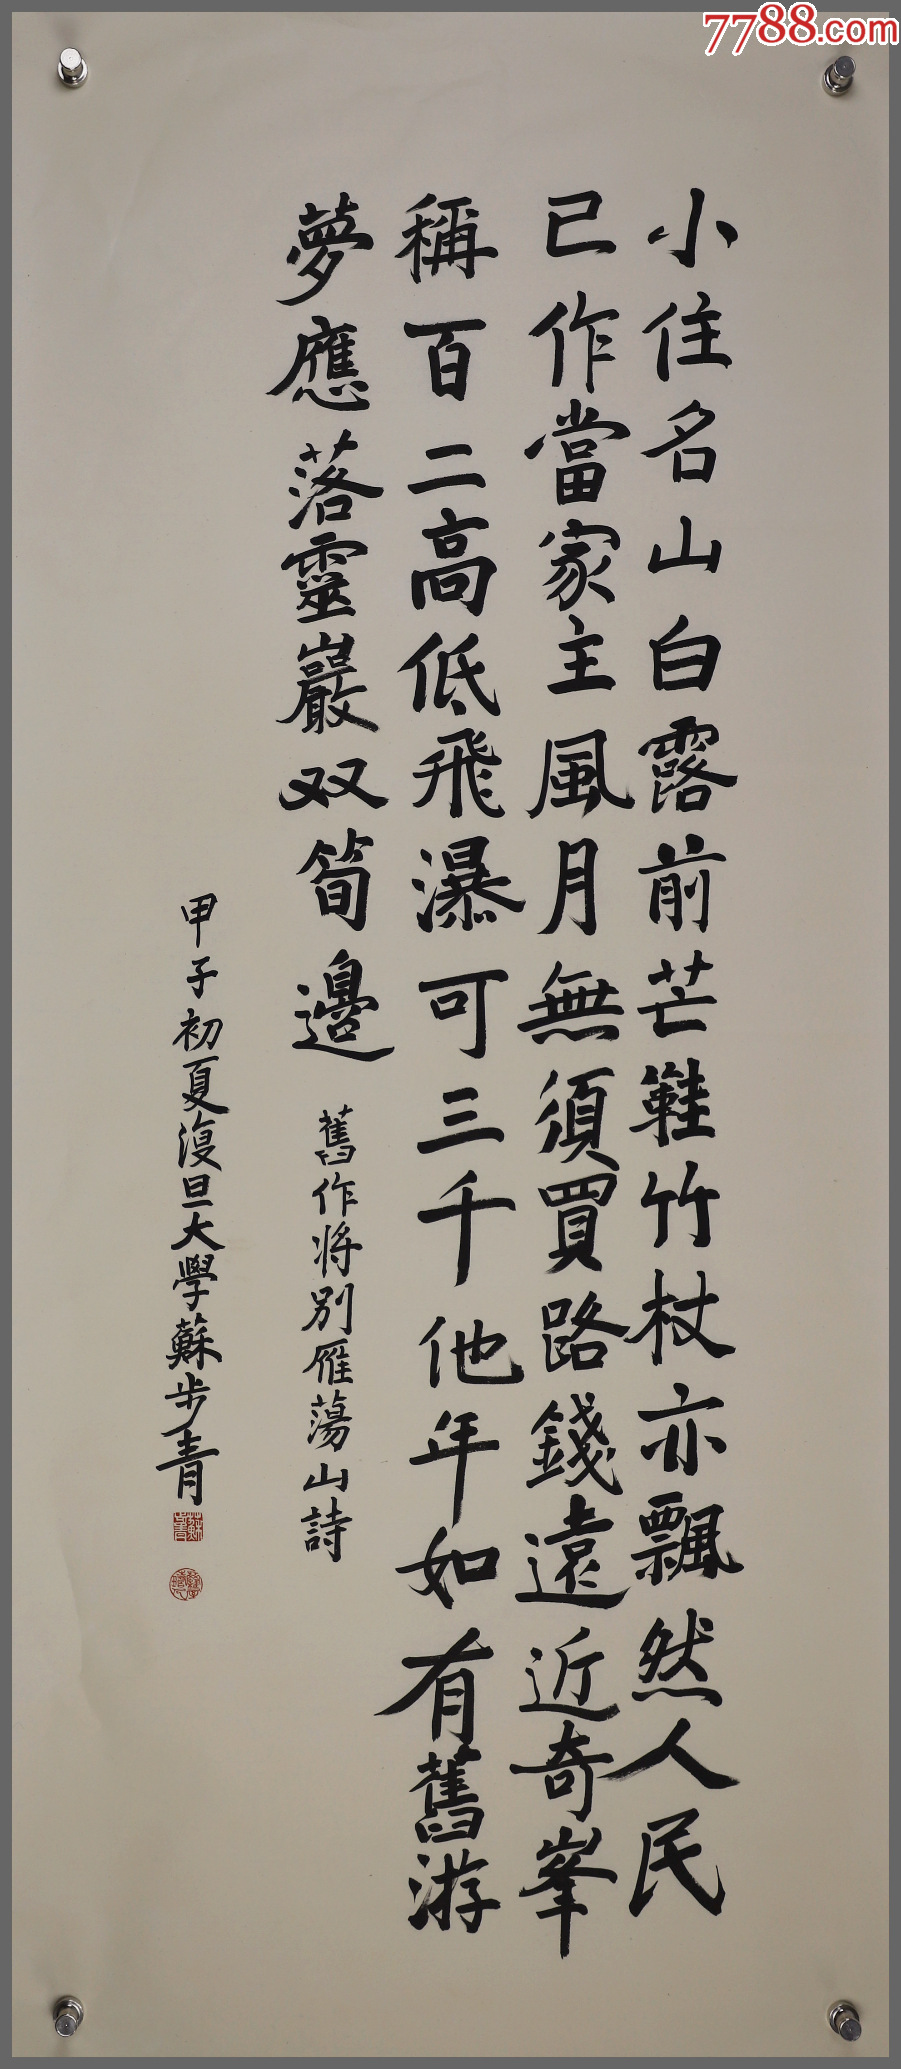 小住名山白露前芒鞋竹杖亦飄然人民
已作當家主風月無須買路錢遠近奇峯
稱百二高低飛瀑可三千他年如有舊游
夢應落靈巖双筍邊
舊作将别雁蕩山詩
甲子初夏復旦大學蘇步青
7788.com